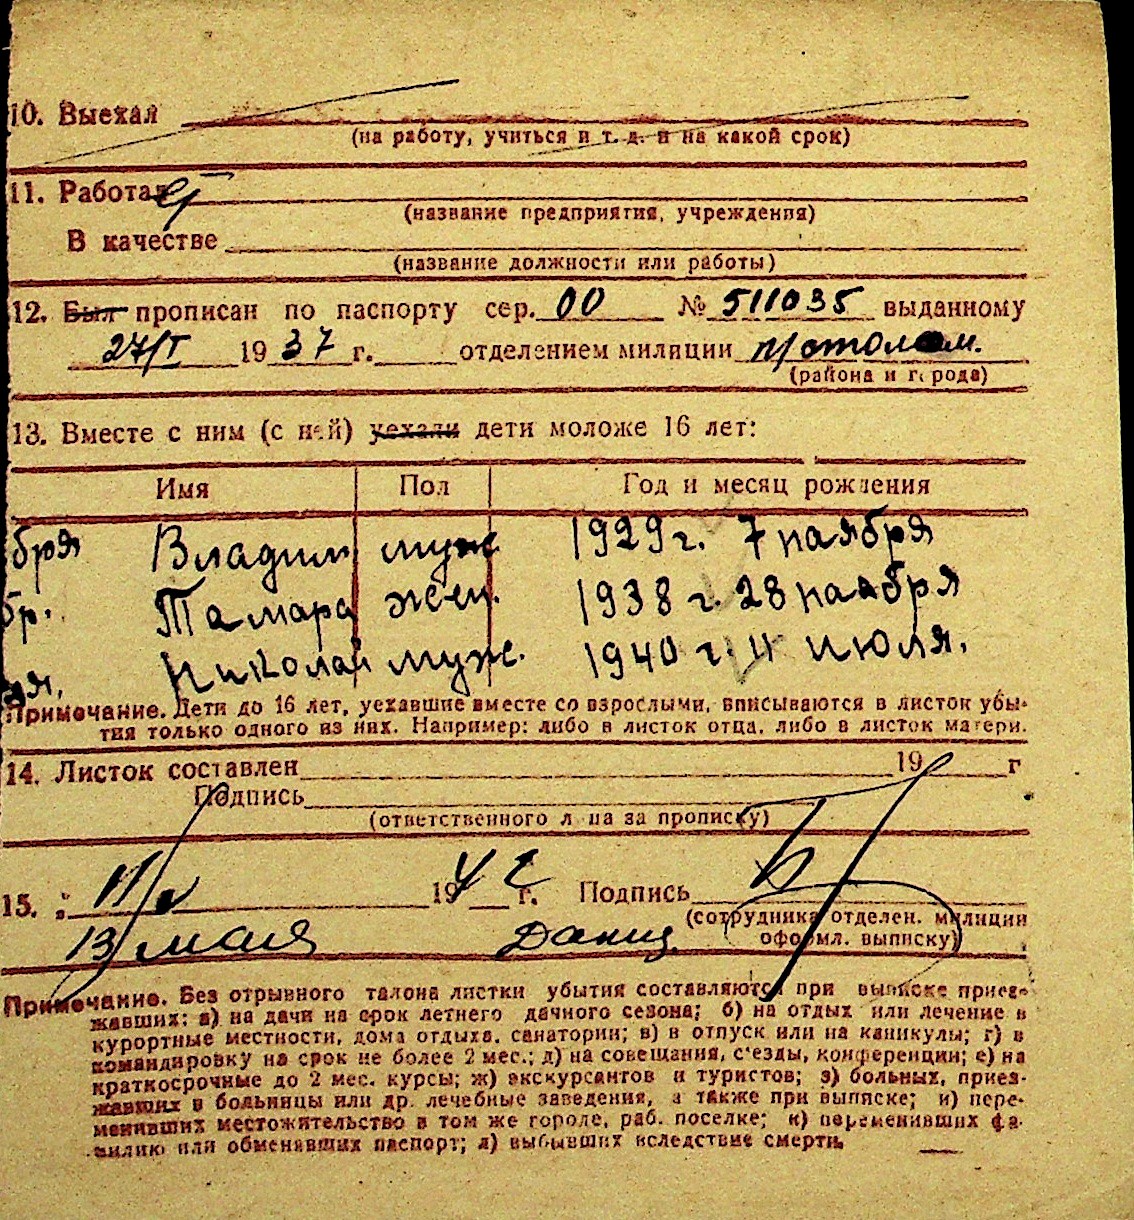 10. Выехал
(на работу, учиться и т. д. и на какой срок)
11. Работал
(название предприятия, учреждения)
В качестве
(название должности или работы)
12. Был прописан по паспорту сер. 00 № 511035 выданному
27/I 1937 г. отделением милиции
(района и города)
13. Вместе с ним (с ней) уехали дети моложе 16 лет:
Имя Пол Год и месяц рождения
бря Владим муж 1929 г. 7 ноября
бр. Тамара жен. 1938 г. 28 ноября
ля. Николай муж. 1940 г. 11 июля.
Примечание. Дети до 16 лет, уехавшие вместе со взрослыми, вписываются в листок убы-
тия только одного из них. Например: либо в листок отца, либо в листок матери.
14. Листок составлен 19 г
Подпись
(ответственного лица за прописку)
15. 11/V 1942 г. Подпись
(сотрудника отделен. милиции
13 мая Данищ
оформл. выписку)
Примечание. Без отрывного талона листки убытия составляются при выписке приез-
жавших: а) на дачи на срок летнего дачного сезона; б) на отдых или лечение в
курортные местности, дома отдыха, санатории; в) в отпуск или на каникулы; г) в
командировку на срок не более 2 мес.; д) на совещания, с'езды, конференции; е) на
краткосрочные до 2 мес. курсы; ж) экскурсантов и туристов; з) больных, приез-
жавших в больницы или др. лечебные заведения, а также при выписке; и) пере-
менивших местожительство в том же городе, раб. поселке; к) переменивших фа-
милию или обменявших паспорт; л) выбывших вследствие смерти.